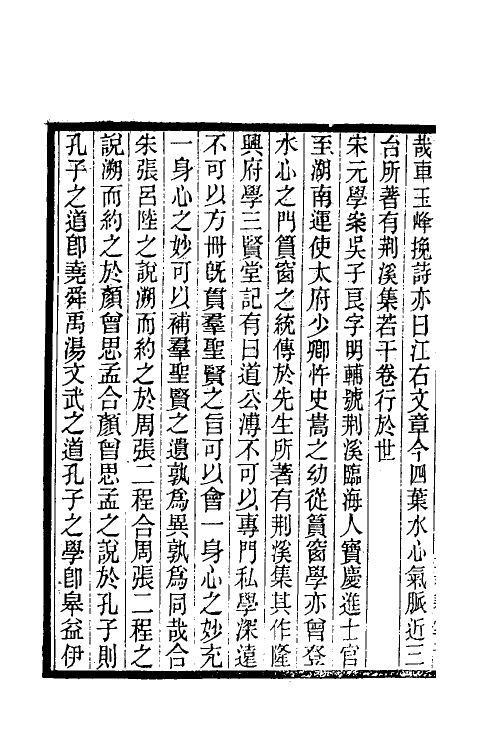 哉車玉峰挽詩亦曰江右文章今四葉水心氣脈近三
台所著有荆溪集若干卷行於世
宋元學案吳子良字明輔號荆溪臨海人寶慶進士官
至湖南運使太府少卿忤史嵩之幼從篔窗學亦曾登
水心之門篔窗之統傳於先生所著有荆溪集其作隆
興府學三賢堂記有曰道公溥不可以專門私學深遠
不可以方冊旣貫羣聖賢之旨可以會一身心之妙充
一身心之妙可以補羣聖賢之遺孰爲異孰爲同哉合
朱張呂陸之說溯而約之於周張二程合周張二程之
說溯而約之於顏曾思孟合顏曾思孟之說於孔子則
孔子之道卽堯舜禹湯文武之道孔子之學卽皋益伊